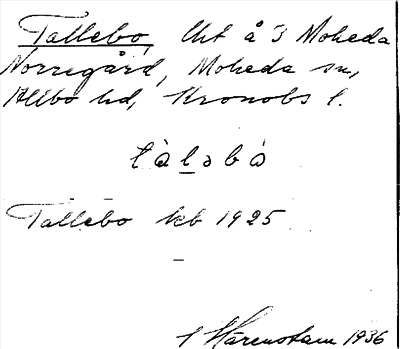 Tallebo, lht å 3 Moheda
Norregård, Moheda sn,
Allbo hd, Kronobs l.
tàləbó
Tallebo kb 1925
–
Härenstam 1936